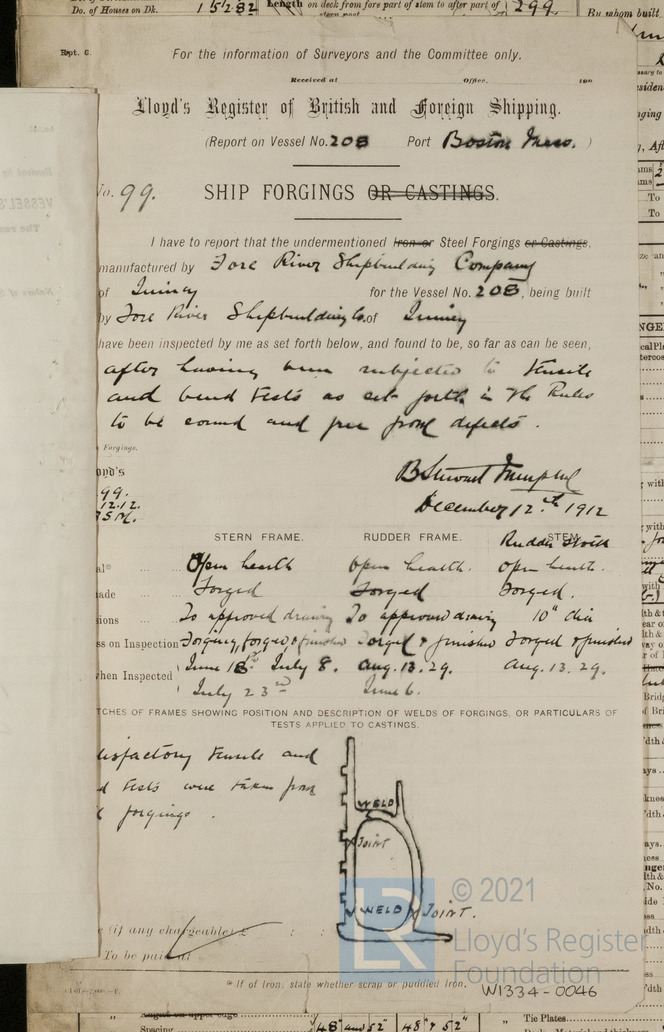 Do. of Houses on Dk.
15282
Length on deck from fore part of stem to after part of
stern post
299
By whom built
Rpt. 6.
For the information of Surveyors and the Committee only.
Received at Office,
Lloyd's Register of British and Foreign Shipping.
(Report on Vessel No. 208 Port Boston Mass. )
No. 99.
SHIP FORGINGS OR CASTINGS.
I have to report that the undermentioned Iron or Steel Forgings or Castings,
manufactured by Fore River Shipbuilding Company
of Quincy for the Vessel No. 208, being built
by Fore River Shipbuilding Co. of Quincy
have been inspected by me as set forth below, and found to be, so far as can be seen,
after having been subjected to tensile
and bend tests as set forth in the Rules
to be sound and free from defects.
Forgings.
oyd's
99.
12.12.
December 12th 1912
STERN FRAME. RUDDER FRAME. STEM.
Rudder Stock
Open hearth Open hearth. Open hearth.
ade Forged Forged Forged.
sions To approved drawing To approved drawing 10" dia
ss on Inspection Forging, forged & finished Forged & finished Forged & finished
hen Inspected June 18th July 8. Aug. 13. 29. Aug. 13. 29.
July 23rd June 6.
TCHES OF FRAMES SHOWING POSITION AND DESCRIPTION OF WELDS OF FORGINGS, OR PARTICULARS OF
TESTS APPLIED TO CASTINGS.
tisfactory tensile and
d tests were taken from
forgings.
WELD
JOINT
WELD
JOINT.
e (if any chargeable) £ : :
To be paid at
* If of Iron, state whether scrap or puddled Iron.
© 2021
Lloyd's Register
Foundation
W1334-0046
Spacing
48" and 52"
48" & 52"
Tie Plates